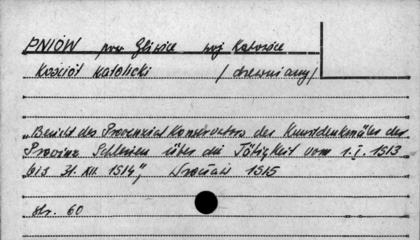 PNIÓW pow Gliwice woj Katowice
Kościół katolicki /drewniany/
"Bericht des Provinzial Konservators der Kunstdenkmäler der
Provinz Schlesien über die Tätigkeit vom 1.I.1513
bis 31.XII.1514", Wrocław 1515
str. 60